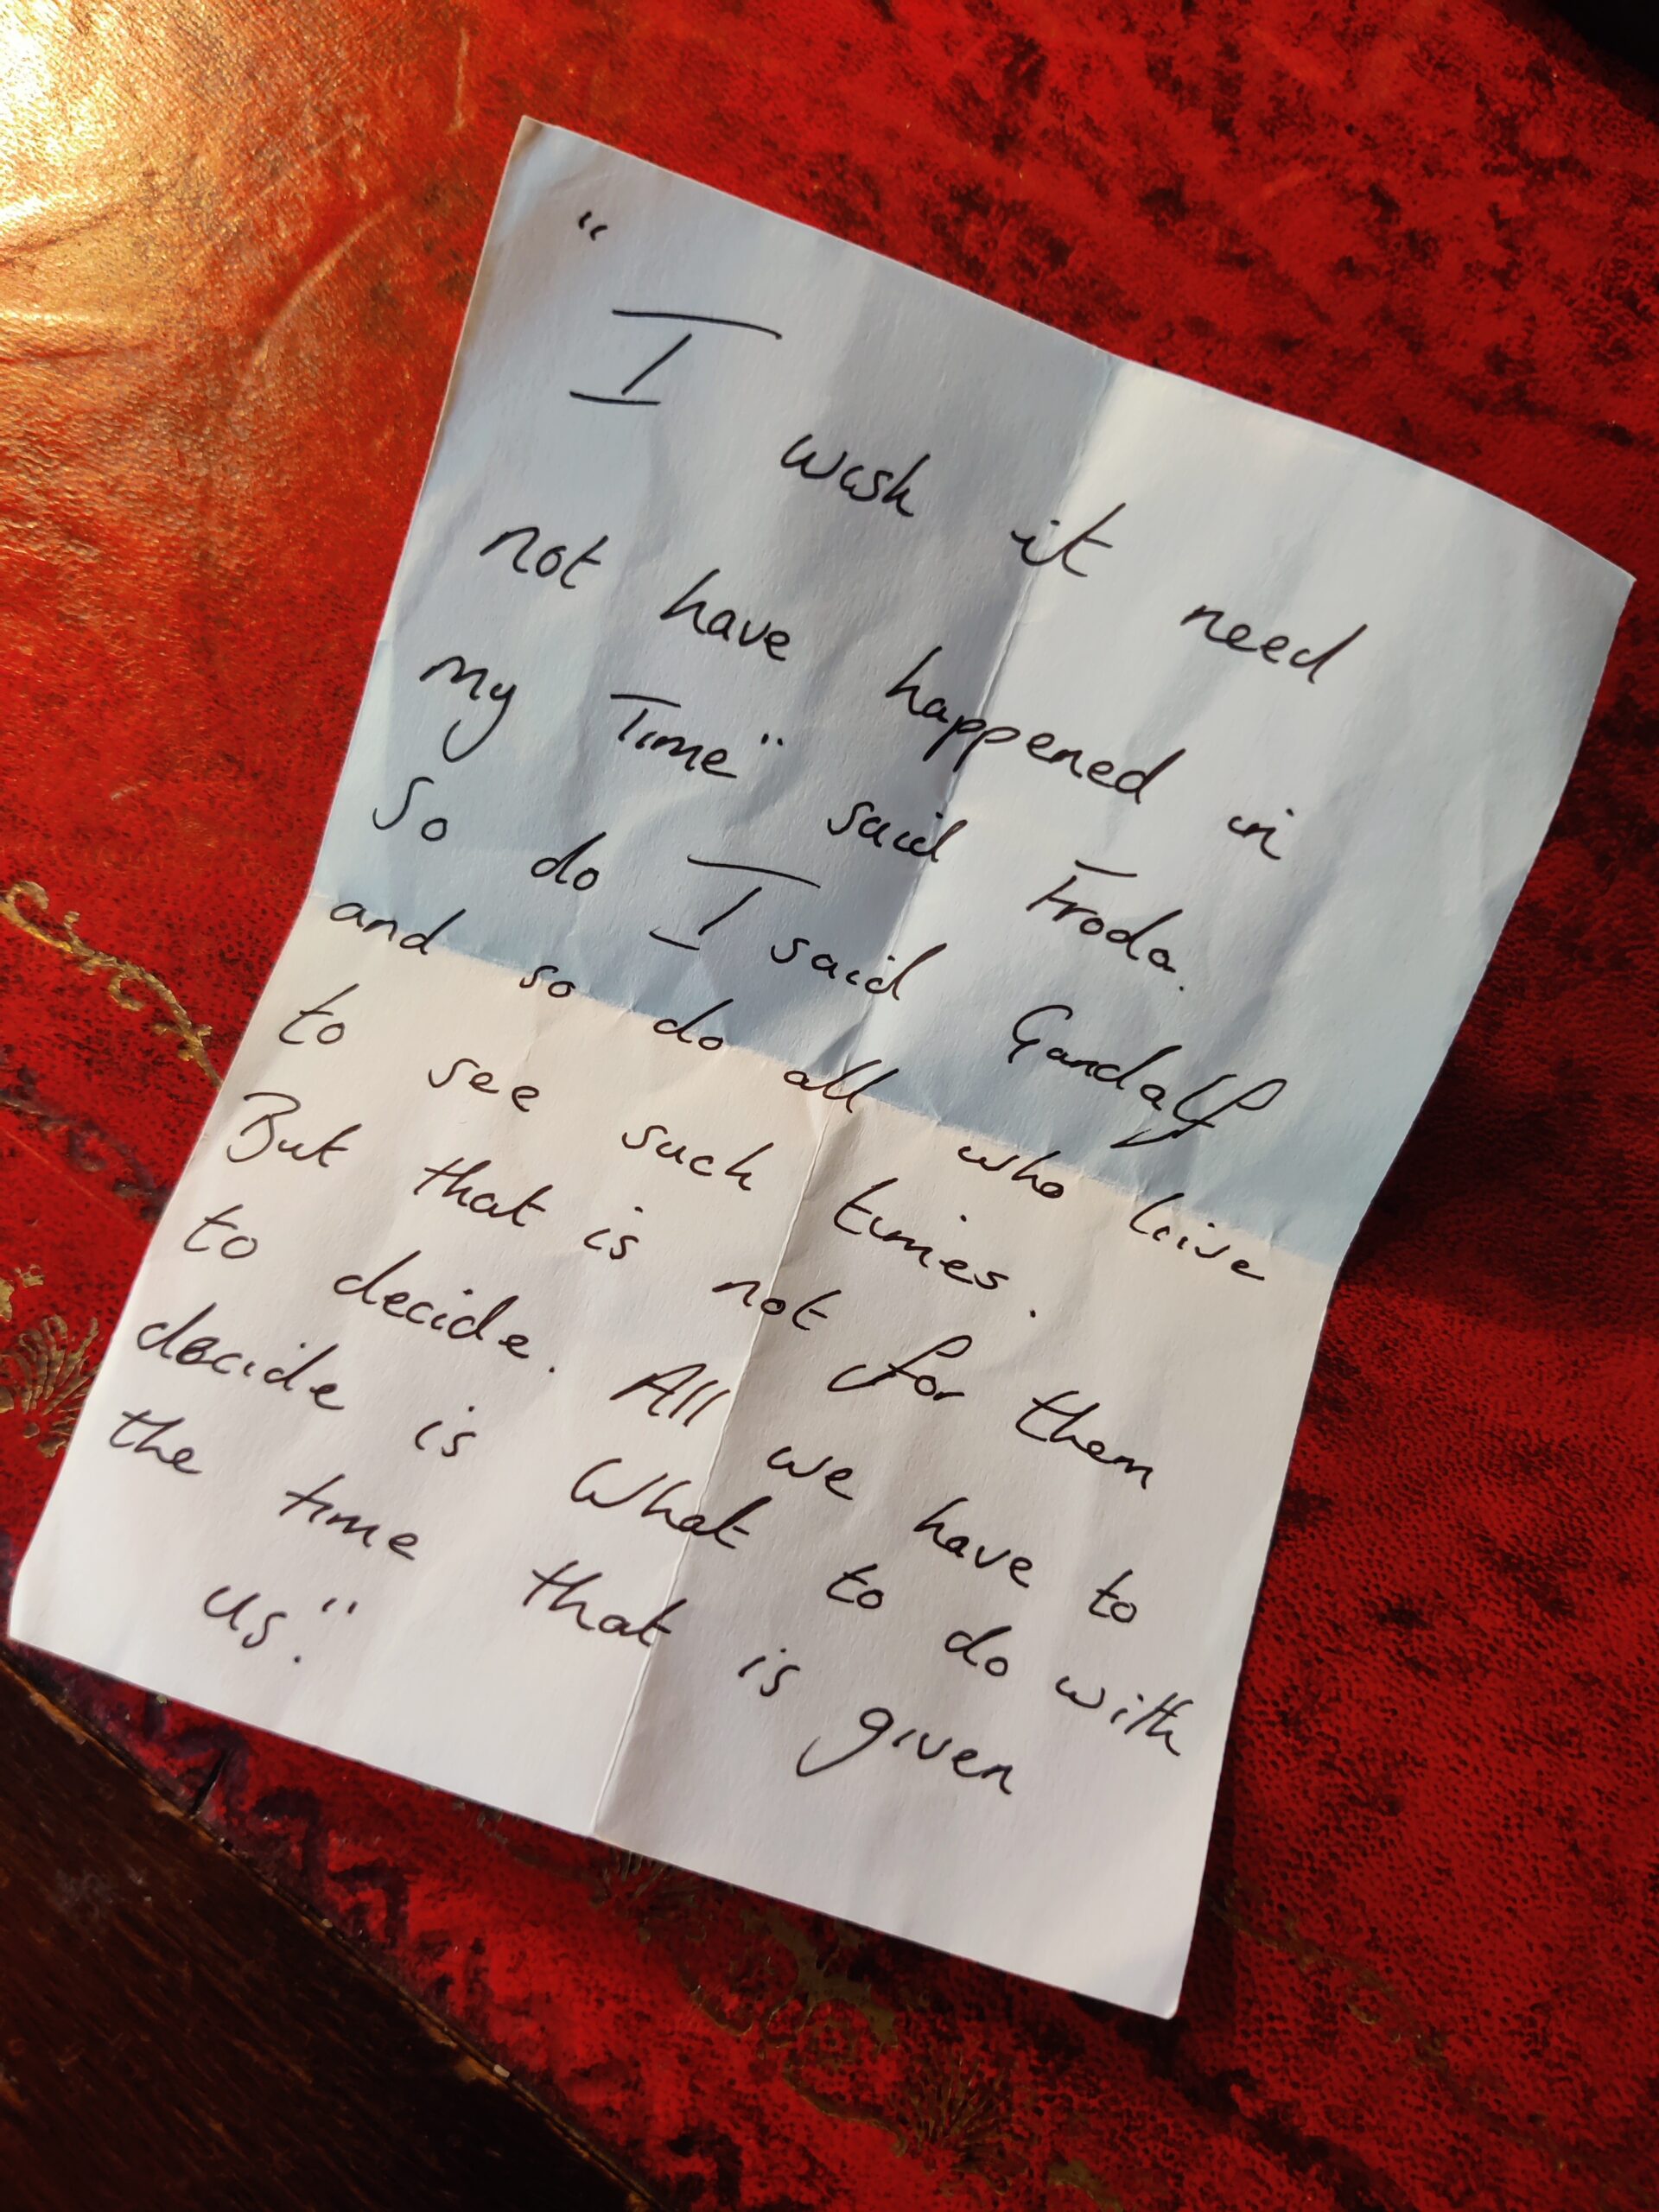 "
I wish it need
not have happened in
my Time" said Frodo.
So do I said Gandalf
and so do all who live
to see such times.
But that is not for them
to decide. All we have to
decide is What to do with
the time that is given
us."